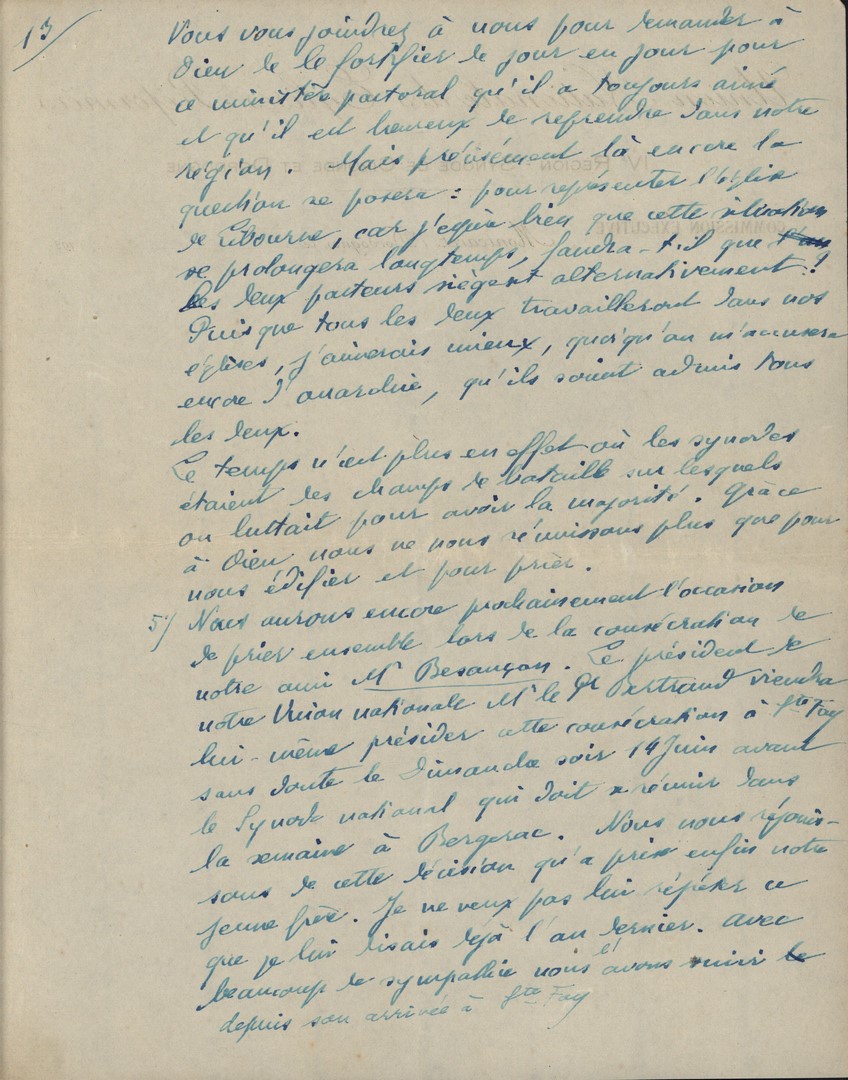 13/
Vous vous joindrez à nous pour demander à
Dieu de le fortifier de jour en jour pour
ce ministère pastoral qu'il a toujours aimé
et qu'il est heureux de reprendre dans notre
région. Mais précisément là encore la
question se posera : pour représenter l'Eglise
de Libourne, car j'espère bien que cette situation
se prolongera longtemps, faudra-t-il que
les deux pasteurs siègent alternativement ?
Puisque tous les deux travailleront dans nos
églises, j'aimerais mieux, quoiqu'on m'accusera
encore d'anarchie, qu'ils soient admis tous
les deux.
Le temps n'est plus en effet où les synodes
étaient des champs de bataille sur lesquels
on luttait pour avoir la majorité. Grâce
à Dieu nous ne nous réunissons plus que pour
nous édifier et pour prier.
5/ Nous aurons encore prochainement l'occasion
de prier ensemble lors de la consécration de
notre ami Mr Besançon. Le président de
notre Union nationale Mr le Pr Bertrand viendra
lui-même présider cette consécration à Ste Foy
sans doute le Dimanche soir 14 Juin avant
le Synode national qui doit se réunir dans
la semaine à Bergerac. Nous nous réjouis-
sons de cette décision qu'a prise enfin notre
jeune frère. Je ne veux pas lui répéter ce
que je lui disais déjà l'an dernier. Avec
beaucoup de sympathie nous l'avons suivi
depuis son arrivée à Ste Foy